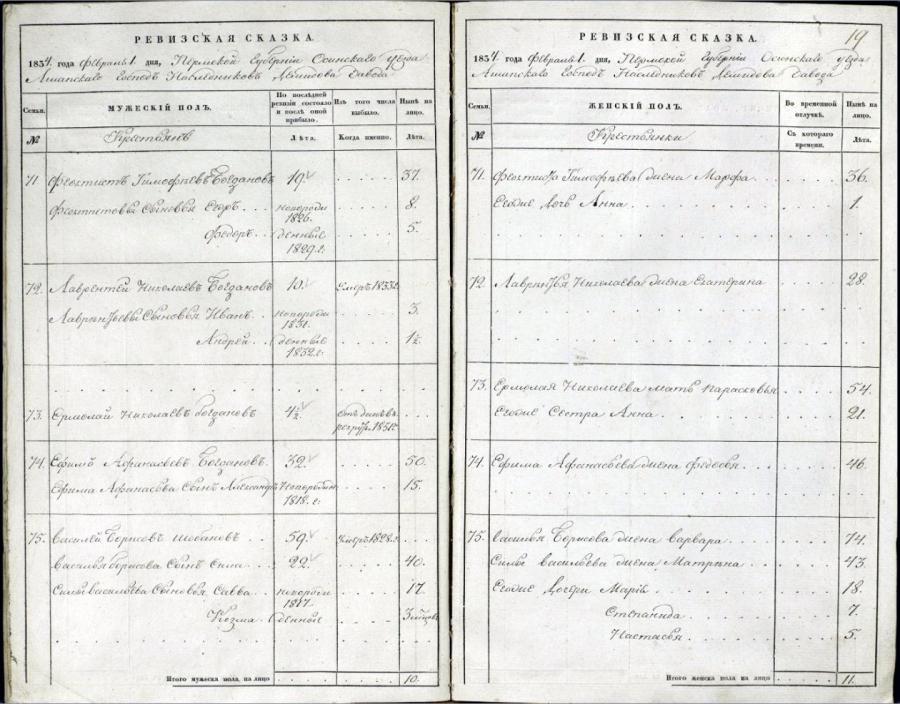 РЕВИЗСКАЯ СКАЗКА.
1834 года Февраля 1 дня, Пермской Губернiи Осинскаго уѣзда
Ашапскаго Господъ Наслѣдниковъ Демидова Завода
Семьи.
МУЖЕСКIЙ ПОЛЪ.
По послѣдней ревизiи состояло и послѣ оной прибыло.
Изъ того числа выбыло.
Нынѣ на лицо.
№
Крестьянъ
Лѣта.
Когда именно.
Лѣта.
71. Феоктистъ Тимофѣевъ Богдановъ 19. 37.
Феоктистовы Сыновья Егоръ новорожденные 1826. 8.
Федоръ 1829 г: 5.
72. Лаврентей Николаевъ Богдановъ 10. Умеръ 1833 г:
Лаврентьевы Сыновья Иванъ новорожденные 1831. 3.
Андрей 1832 г: 1½.
73. Ермолай Николаевъ Богдановъ 4½ 1831 г:
74. Ефимъ Афанасьевъ Богдановъ 32. 50.
Ефима Афанасьева Сынъ Александръ 1818 г: 15.
75. Василей Борисовъ Шобановъ 59. Умеръ 1828 г:
Василья Борисова Сынъ Сила 22. 40.
Силы Васильева Сыновья Савва новорожденные 1817. 17.
Козма
Итого мужеска пола, на лицо 10.
19
РЕВИЗСКАЯ СКАЗКА.
1834 года Февраля 1 дня, Пермской Губернiи Осинскаго уѣзда
Ашапскаго Господъ Наслѣдниковъ Демидова Завода
Семьи.
ЖЕНСКIЙ ПОЛЪ.
Во временной отлучкѣ.
Нынѣ на лицо.
№
Крестьянки
Съ котораго времени.
Лѣта.
71. Феоктиста Тимофѣева жена Марфа 36.
Егоже дочь Анна 1.
72. Лаврентья Николаева жена Екатерина 28.
73. Ермолая Николаева мать Парасковья 54.
Егоже Сестра Анна 21.
74. Ефима Афанасьева жена Федосья 46.
75. Василья Борисова жена Варвара 74.
Силы Васильева жена Матрена 43.
Егоже дочери Марiя 18.
Степанида 7.
Настасья 5.
Итого женска пола, на лицо 11.